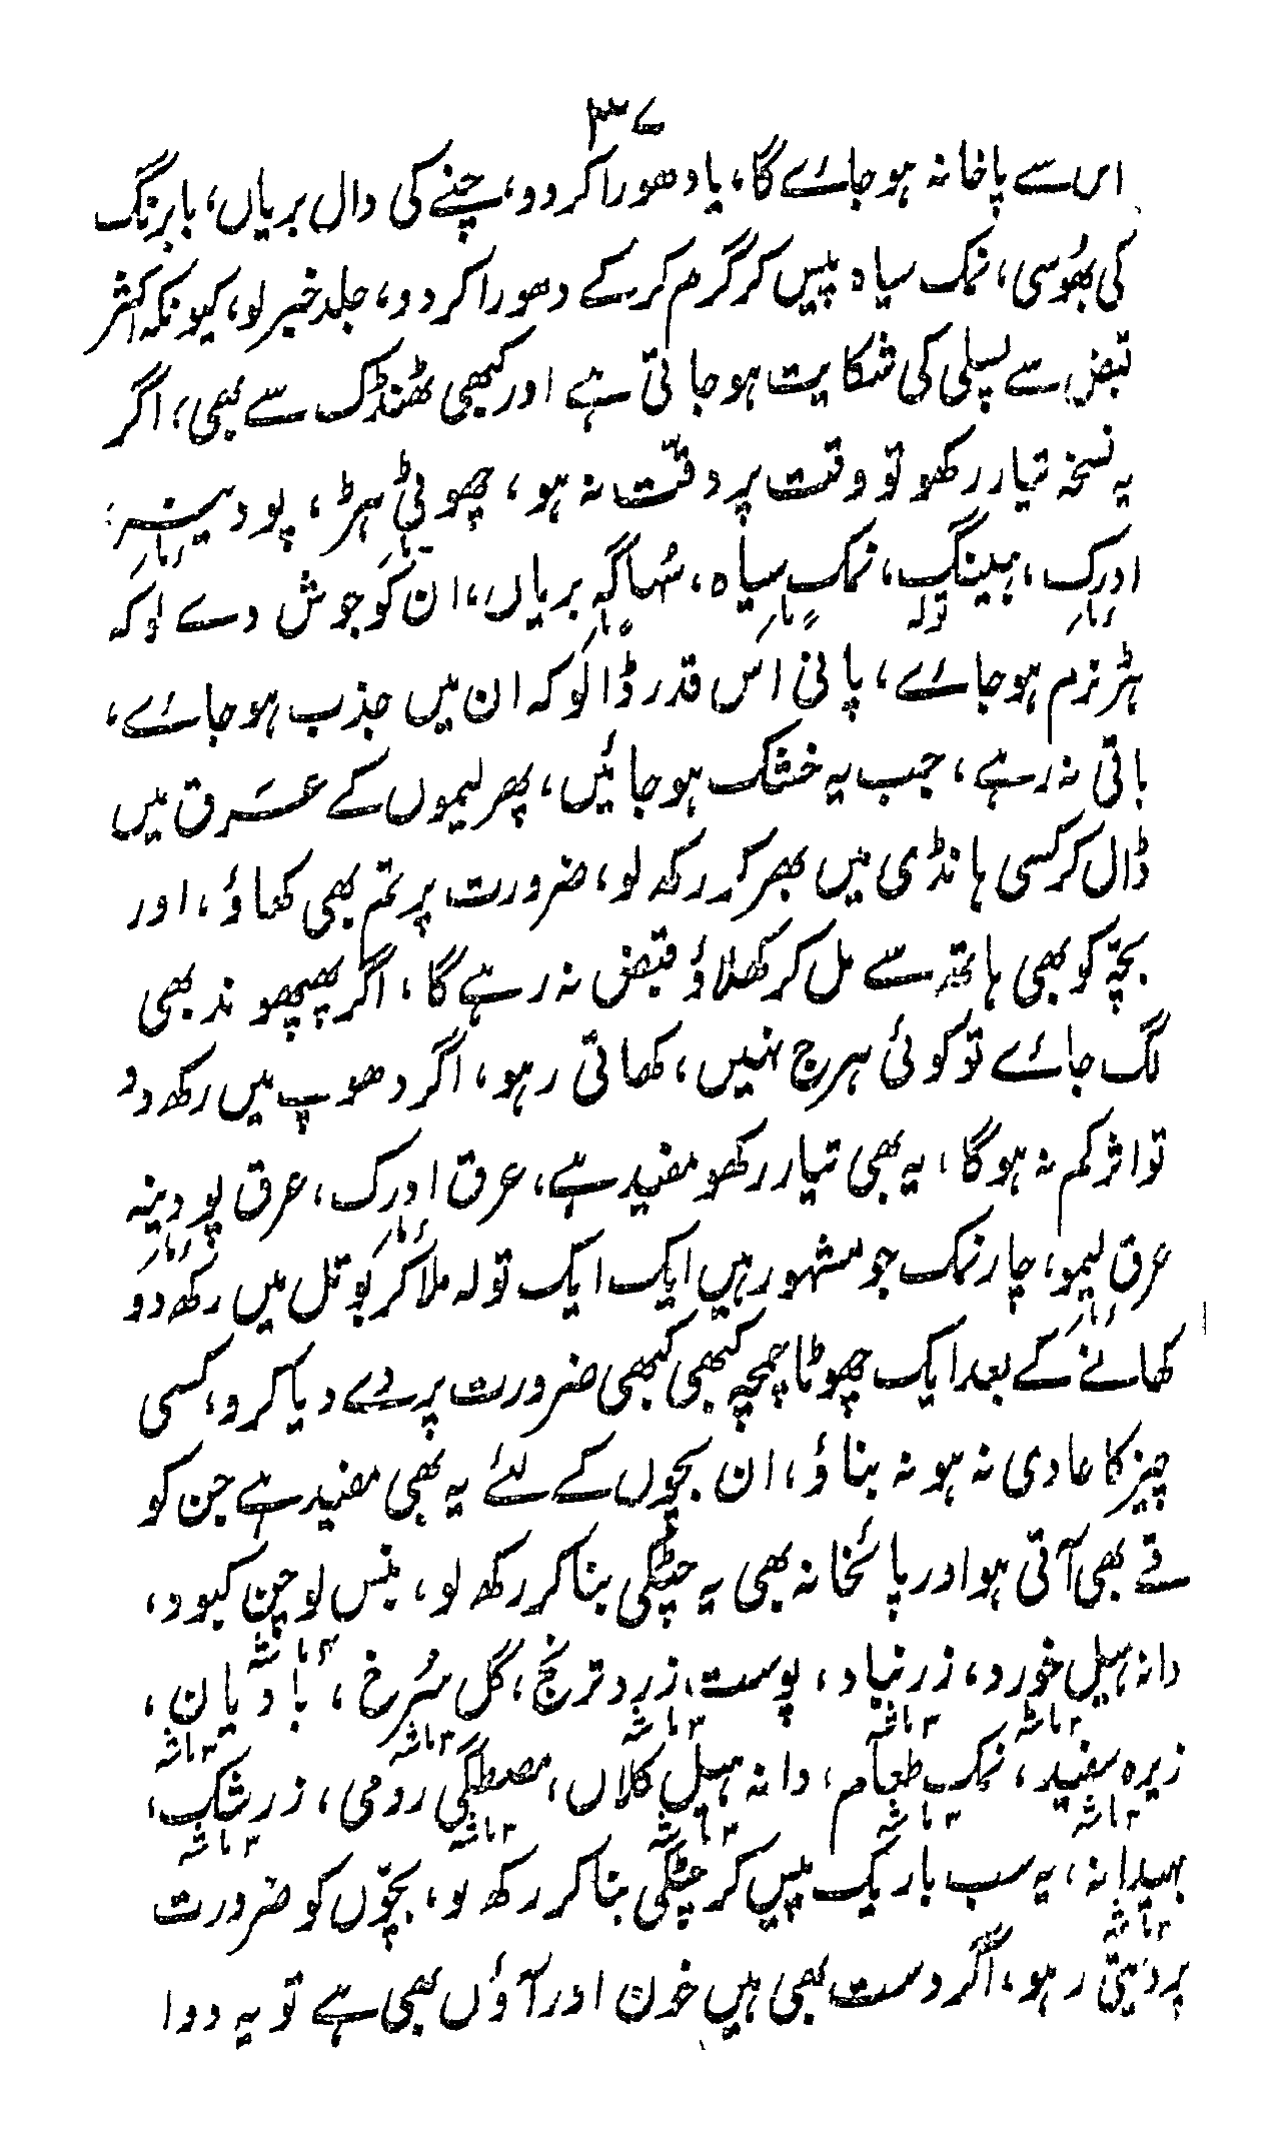 ۳۷
اس سے پاخانہ ہو جائے گا، یا دھورا کر دو، چنے کی دال بریاں، بابرنگ
کی بھُوسی، نمک سیاہ پیس کر گرم کر کے دھورا کر دو، جلد خبر لو، کیونکہ اکثر
قبض سے پسلی کی شکایت ہو جاتی ہے اور کبھی ٹھنڈک سے بھی، اگر
یہ نسخہ تیار رکھو تو وقت پر دقّت نہ ہو، چھوٹی ہڑ، پودینہ،
ادرک، ہینگ، نمک سیاہ، سُہاگہ بریاں، ان کو جوش دے لو کہ
تولہ
ہڑ نرم ہو جائے، پانی اس قدر ڈالو کہ ان میں جذب ہو جائے،
باقی نہ رہے، جب یہ خشک ہو جائیں، پھر لیموں کے عَرق میں
ڈال کر کسی ہانڈی میں بھر کر رکھ لو، ضرورت پر تم بھی کھاؤ، اور
بچّہ کو بھی ہاتھ سے مل کر کھلاؤ قبض نہ رہے گا، اگر پھپھوند بھی
لگ جائے تو کوئی ہرج نہیں، کھاتی رہو، اگر دھوپ میں رکھ دو
تو اثر کم نہ ہوگا، یہ بھی تیار رکھو مفید ہے، عرق ادرک، عرق پودینہ
عرق لیمو، چار نمک جو مشہور ہیں ایک ایک تولہ ملا کر بوتل میں رکھ دو
کھانے کے بعد ایک چھوٹا چمچہ کبھی کبھی ضرورت پر دے دیا کرو، کسی
چیز کا عادی نہ ہو نہ بناؤ، ان بچوں کے لئے یہ بھی مفید ہے جن کو
قے بھی آتی ہو اور پائخانہ بھی یہ چٹکی بنا کر رکھ لو، بنس لوچن کبود،
۳ ماشہ
دانہ ہیل خورد، زرنباد، پوست زرد ترنج، گل سُرخ، بادیان،
۳ ماشہ ۳ ماشہ ۳ ماشہ ۳ ماشہ ۳ ماشہ
زیرہ سفید، نمک طعام، دانہ ہیل کلاں، مصطگی رومی، زرشک،
۳ ماشہ ۳ ماشہ ۳ ماشہ ۳ ماشہ ۳ ماشہ
بہیدانہ، یہ سب باریک پیس کر چٹکی بنا کر رکھ لو، بچّوں کو ضرورت
۳ ماشہ
پر دیتی رہو، اگر دست بھی ہیں خون اور آؤں بھی ہے تو یہ دوا